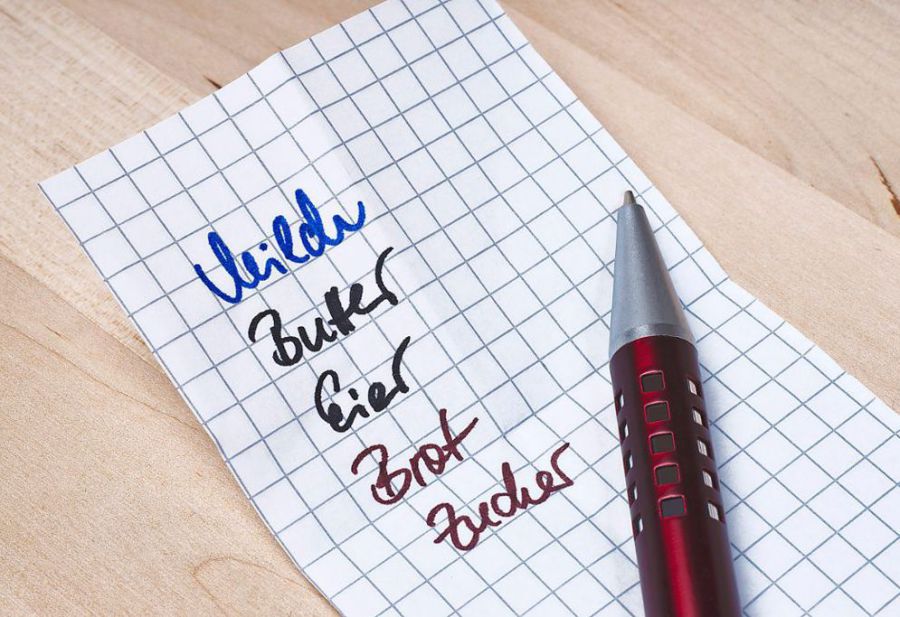 Milch
Butter
Eier
Brot
Zucker